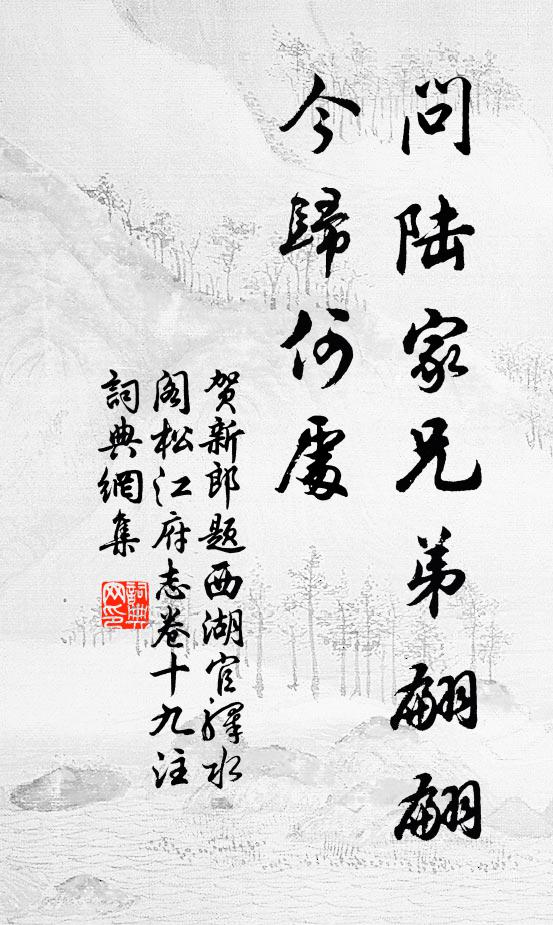 问陆家兄弟翩翩
今歸何處
贺新郎题西湖官驿水
阁松江府志卷十九注
詞典網集
詞典
网印